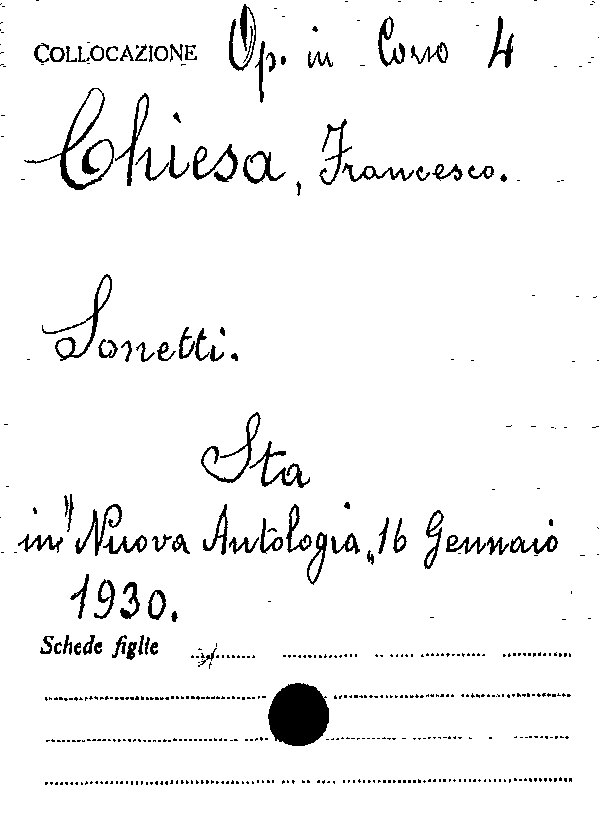 COLLOCAZIONE Op. in Corso 4
Chiesa, Francesco.
Sonetti.
Sta
in "Nuova Antologia„ 16 Gennaio
1930.
Schede figlie